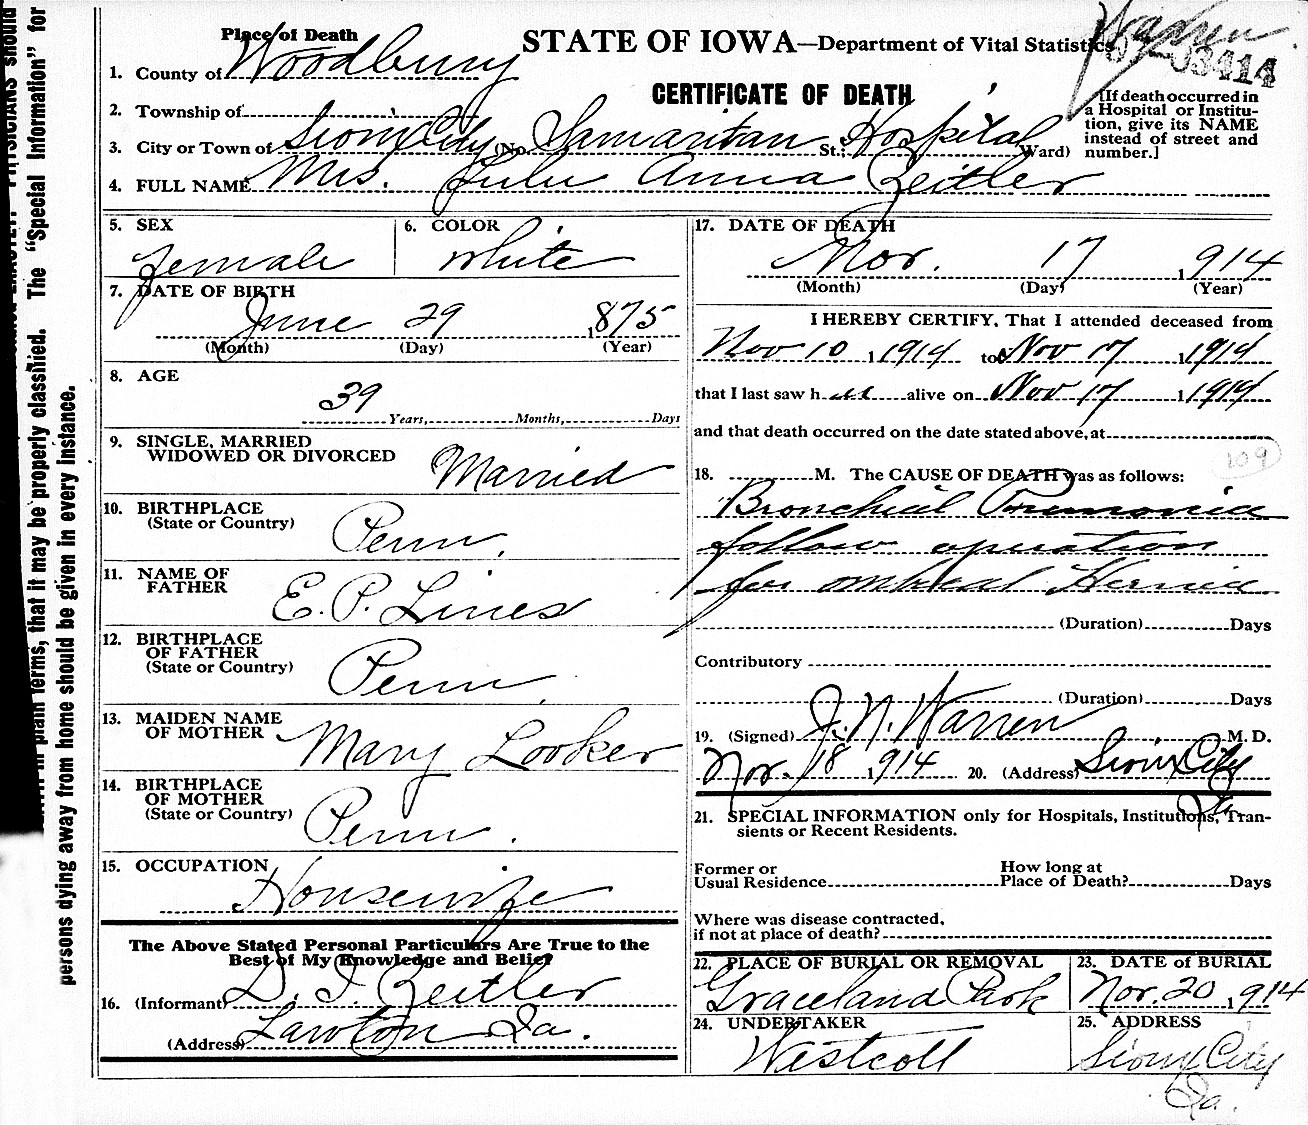 PHYSICIANS should
The "Special Information" for
in plain terms, that it may be properly classified.
persons dying away from home should be given in every instance.
Warren
03414
STATE OF IOWA—Department of Vital Statistics.
CERTIFICATE OF DEATH
[If death occurred in
a Hospital or Institu-
tion, give its NAME
instead of street and
number.]
Place of Death
1. County of Woodbury
2. Township of
3. City or Town of Sioux City (No. Samaritan St.; Hospital Ward)
4. FULL NAME Mrs. Lulu Anna Zeitler
5. SEX
female
6. COLOR
white
7. DATE OF BIRTH
June 29 1875
(Month) (Day) (Year)
8. AGE
39
Years, Months, Days
9. SINGLE, MARRIED
WIDOWED OR DIVORCED Married
10. BIRTHPLACE
(State or Country) Penn.
11. NAME OF
FATHER E. P. Lines
12. BIRTHPLACE
OF FATHER
(State or Country) Penn.
13. MAIDEN NAME
OF MOTHER Mary Looker
14. BIRTHPLACE
OF MOTHER
(State or Country) Penn.
15. OCCUPATION
Housewife
The Above Stated Personal Particulars Are True to the
Best of My Knowledge and Belief
16. (Informant) D. I. Zeitler
(Address) Lawton Ia.
17. DATE OF DEATH
Nov. 17 1914
(Month) (Day) (Year)
I HEREBY CERTIFY, That I attended deceased from
Nov 10 1914 to Nov 17 1914
that I last saw her alive on Nov 17 1914
and that death occurred on the date stated above, at
109
18. M. The CAUSE OF DEATH was as follows:
Bronchial Pneumonia
follow operation
for umbilical Hernia
(Duration) Days
Contributory
(Duration) Days
19. (Signed) J. N. Warren M. D.
Nov. 18 1914 20. (Address) Sioux City
Ia
21. SPECIAL INFORMATION only for Hospitals, Institutions, Tran-
sients or Recent Residents.
Former or
Usual Residence
How long at
Place of Death? Days
Where was disease contracted,
if not at place of death?
22. PLACE OF BURIAL OR REMOVAL
Graceland Park
23. DATE of BURIAL
Nov. 20, 1914
24. UNDERTAKER
Westcott
25. ADDRESS
Sioux City
Ia.